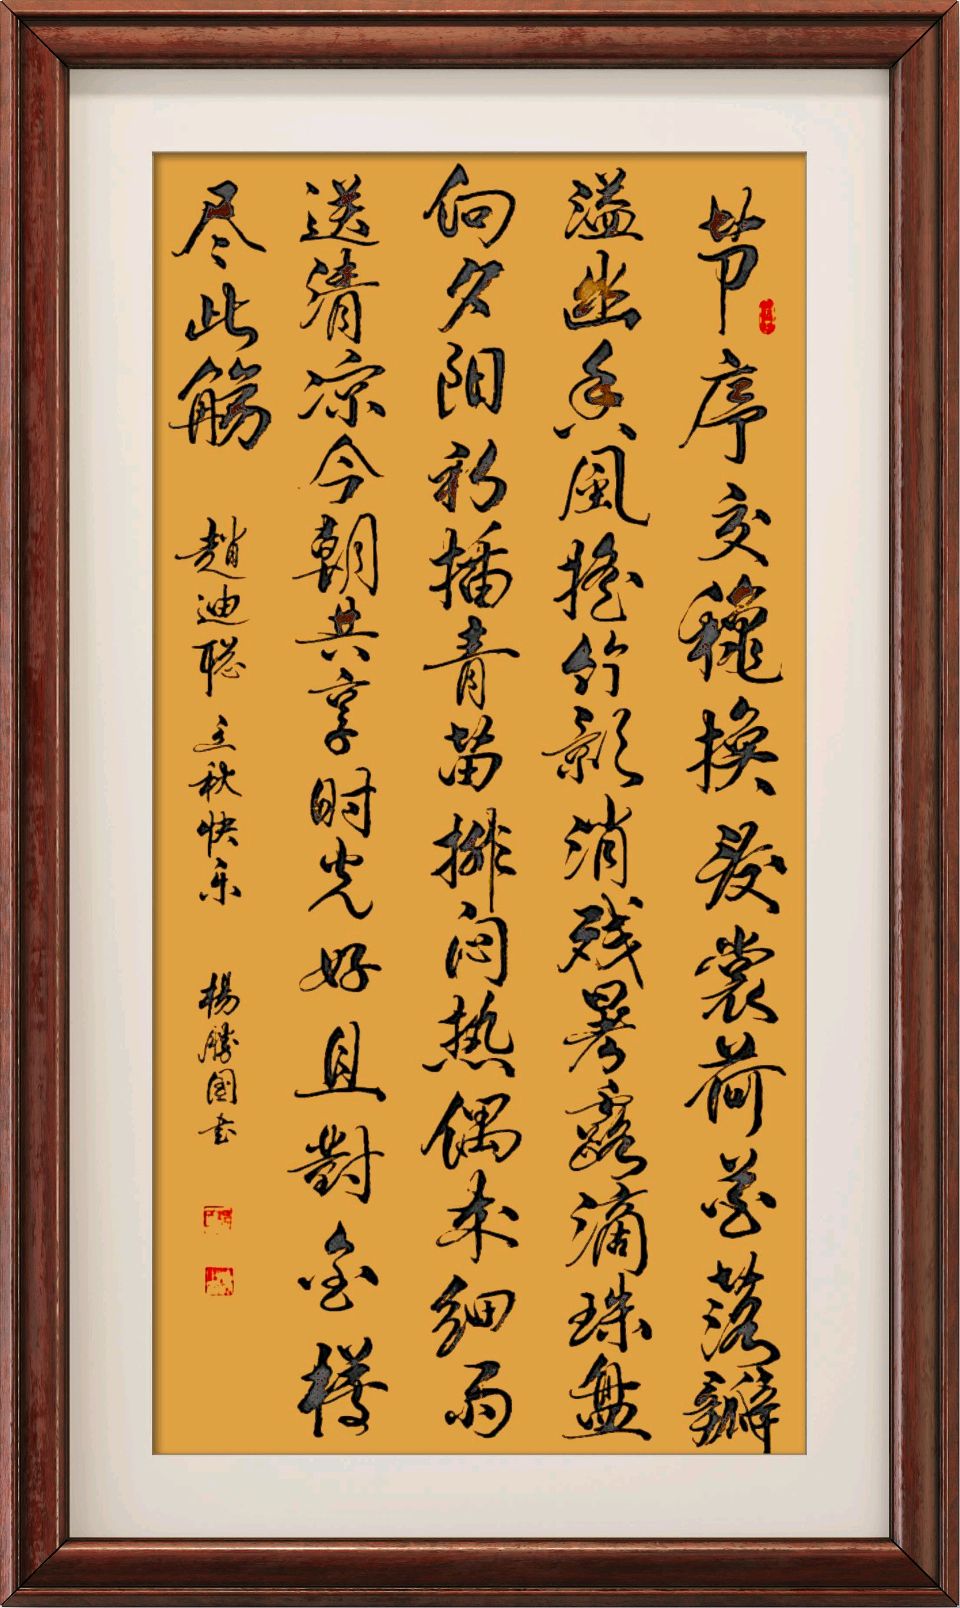 节序交穐换夏裳荷花落瓣
溢幽香风摇竹影消残暑露滴珠盘
向夕阳初播青苗排闷热偶来细雨
送清凉今朝共享时光好且對金樽
尽此觞 趙迪聪 立秋快乐 楊勝国书